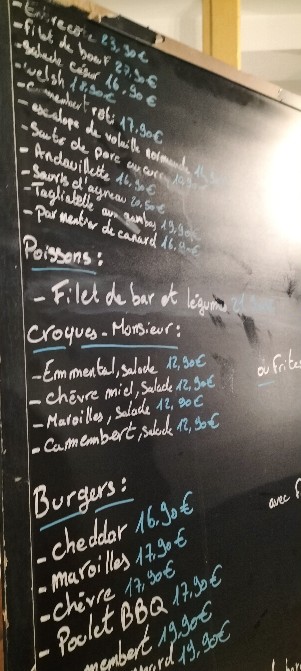 - Entrecote 23,90€
- Filet de boeuf 27,90€
- Salade César 16,90€
- welsh 17,90€
- camembert roti 17,90€
- escalope de volaille normande
- Sauté de porc au curry
- Andouillette 16,90€
- Souris d'agneau 20,50€
- Tagliatelle aux gambas 19,90€
- Parmentier de canard 16,90€
Poissons :
- Filet de bar et légumes
Croques-Monsieur :
- Emmental, salade 12,90€
- chèvre miel, salade 12,90€
- Maroilles, salade 12,90€
- Camembert, salade 12,90€
ou Frites
Burgers :
- cheddar 16,90€
- maroilles 17,90€
- chèvre 17,90€
- Poulet BBQ 17,90€
membert 19,90€
19,90€
avec